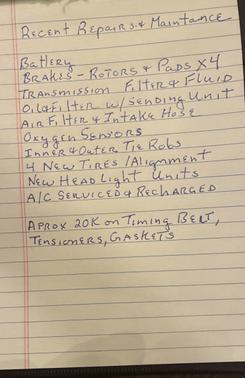 Recent Repairs & Maintance
Battery
Brakes - Rotors & Pads x4
Transmission Filter & Fluid
Oil & Filter w/ Sending Unit
Air Filter & Intake Hose
Oxygen Sensors
Inner & Outer Tie Rods
4 New Tires / Alignment
New Head Light Units
A/C Serviced & Recharged
Aprox 20K on Timing Belt,
Tensioners, Gaskets